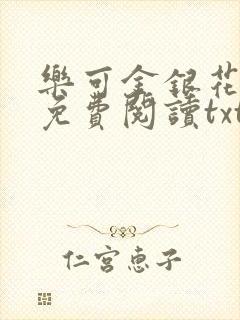 樂可金銀花
免費閱讀txt
仁宮恵子